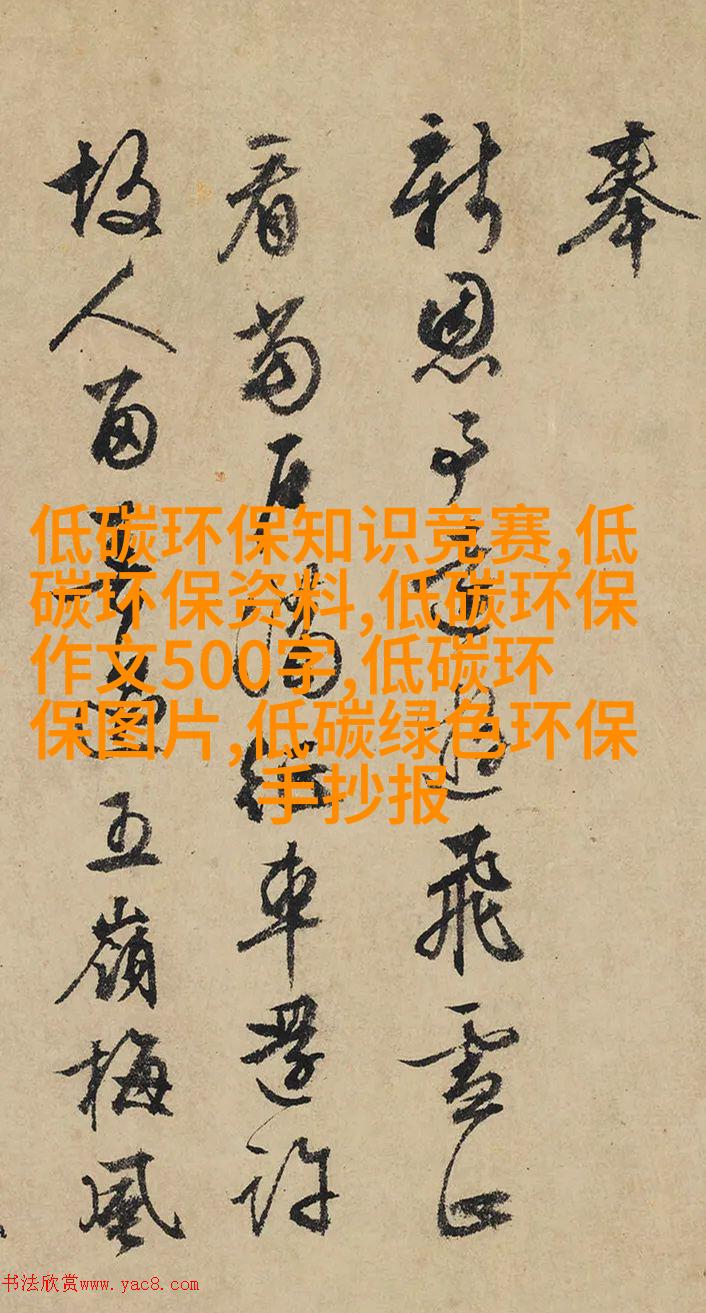 奉
新恩予飛雪
看車還許
故人五嶺梅風
低碳环保知识竞赛,低
碳环保资料,低碳环保
作文500字,低碳环
保图片,低碳绿色环保
手抄报
书法欣赏www.yac8.com